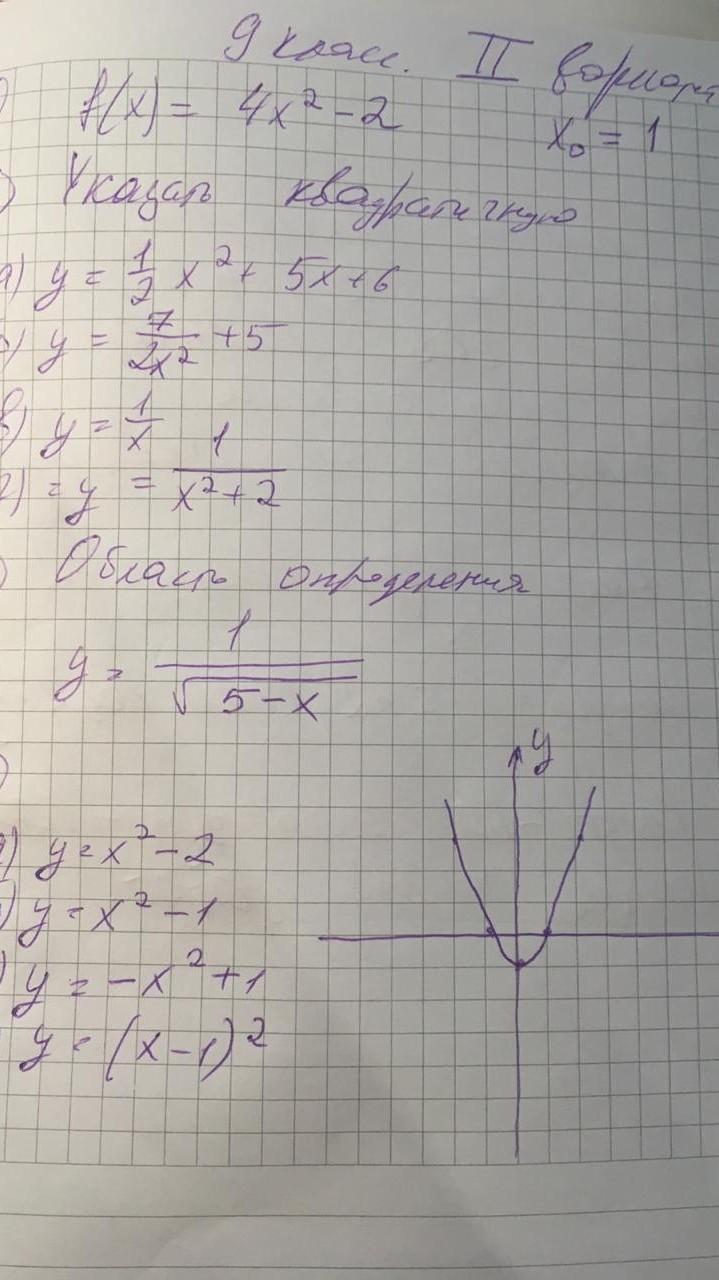 9 класс. II вариант
) f(x) = 4x² - 2 x₀ = 1
) Указать квадратичную
а) y = 1/2 x² + 5x + 6
) y = 7/2x² + 5
в) y = 1/x
г) = y = 1/x² + 2
) Область определения
y = 1/√5 - x
)
y
) y = x² - 2
) y = x² - 1
) y = -x² + 1
y = (x - 1)²